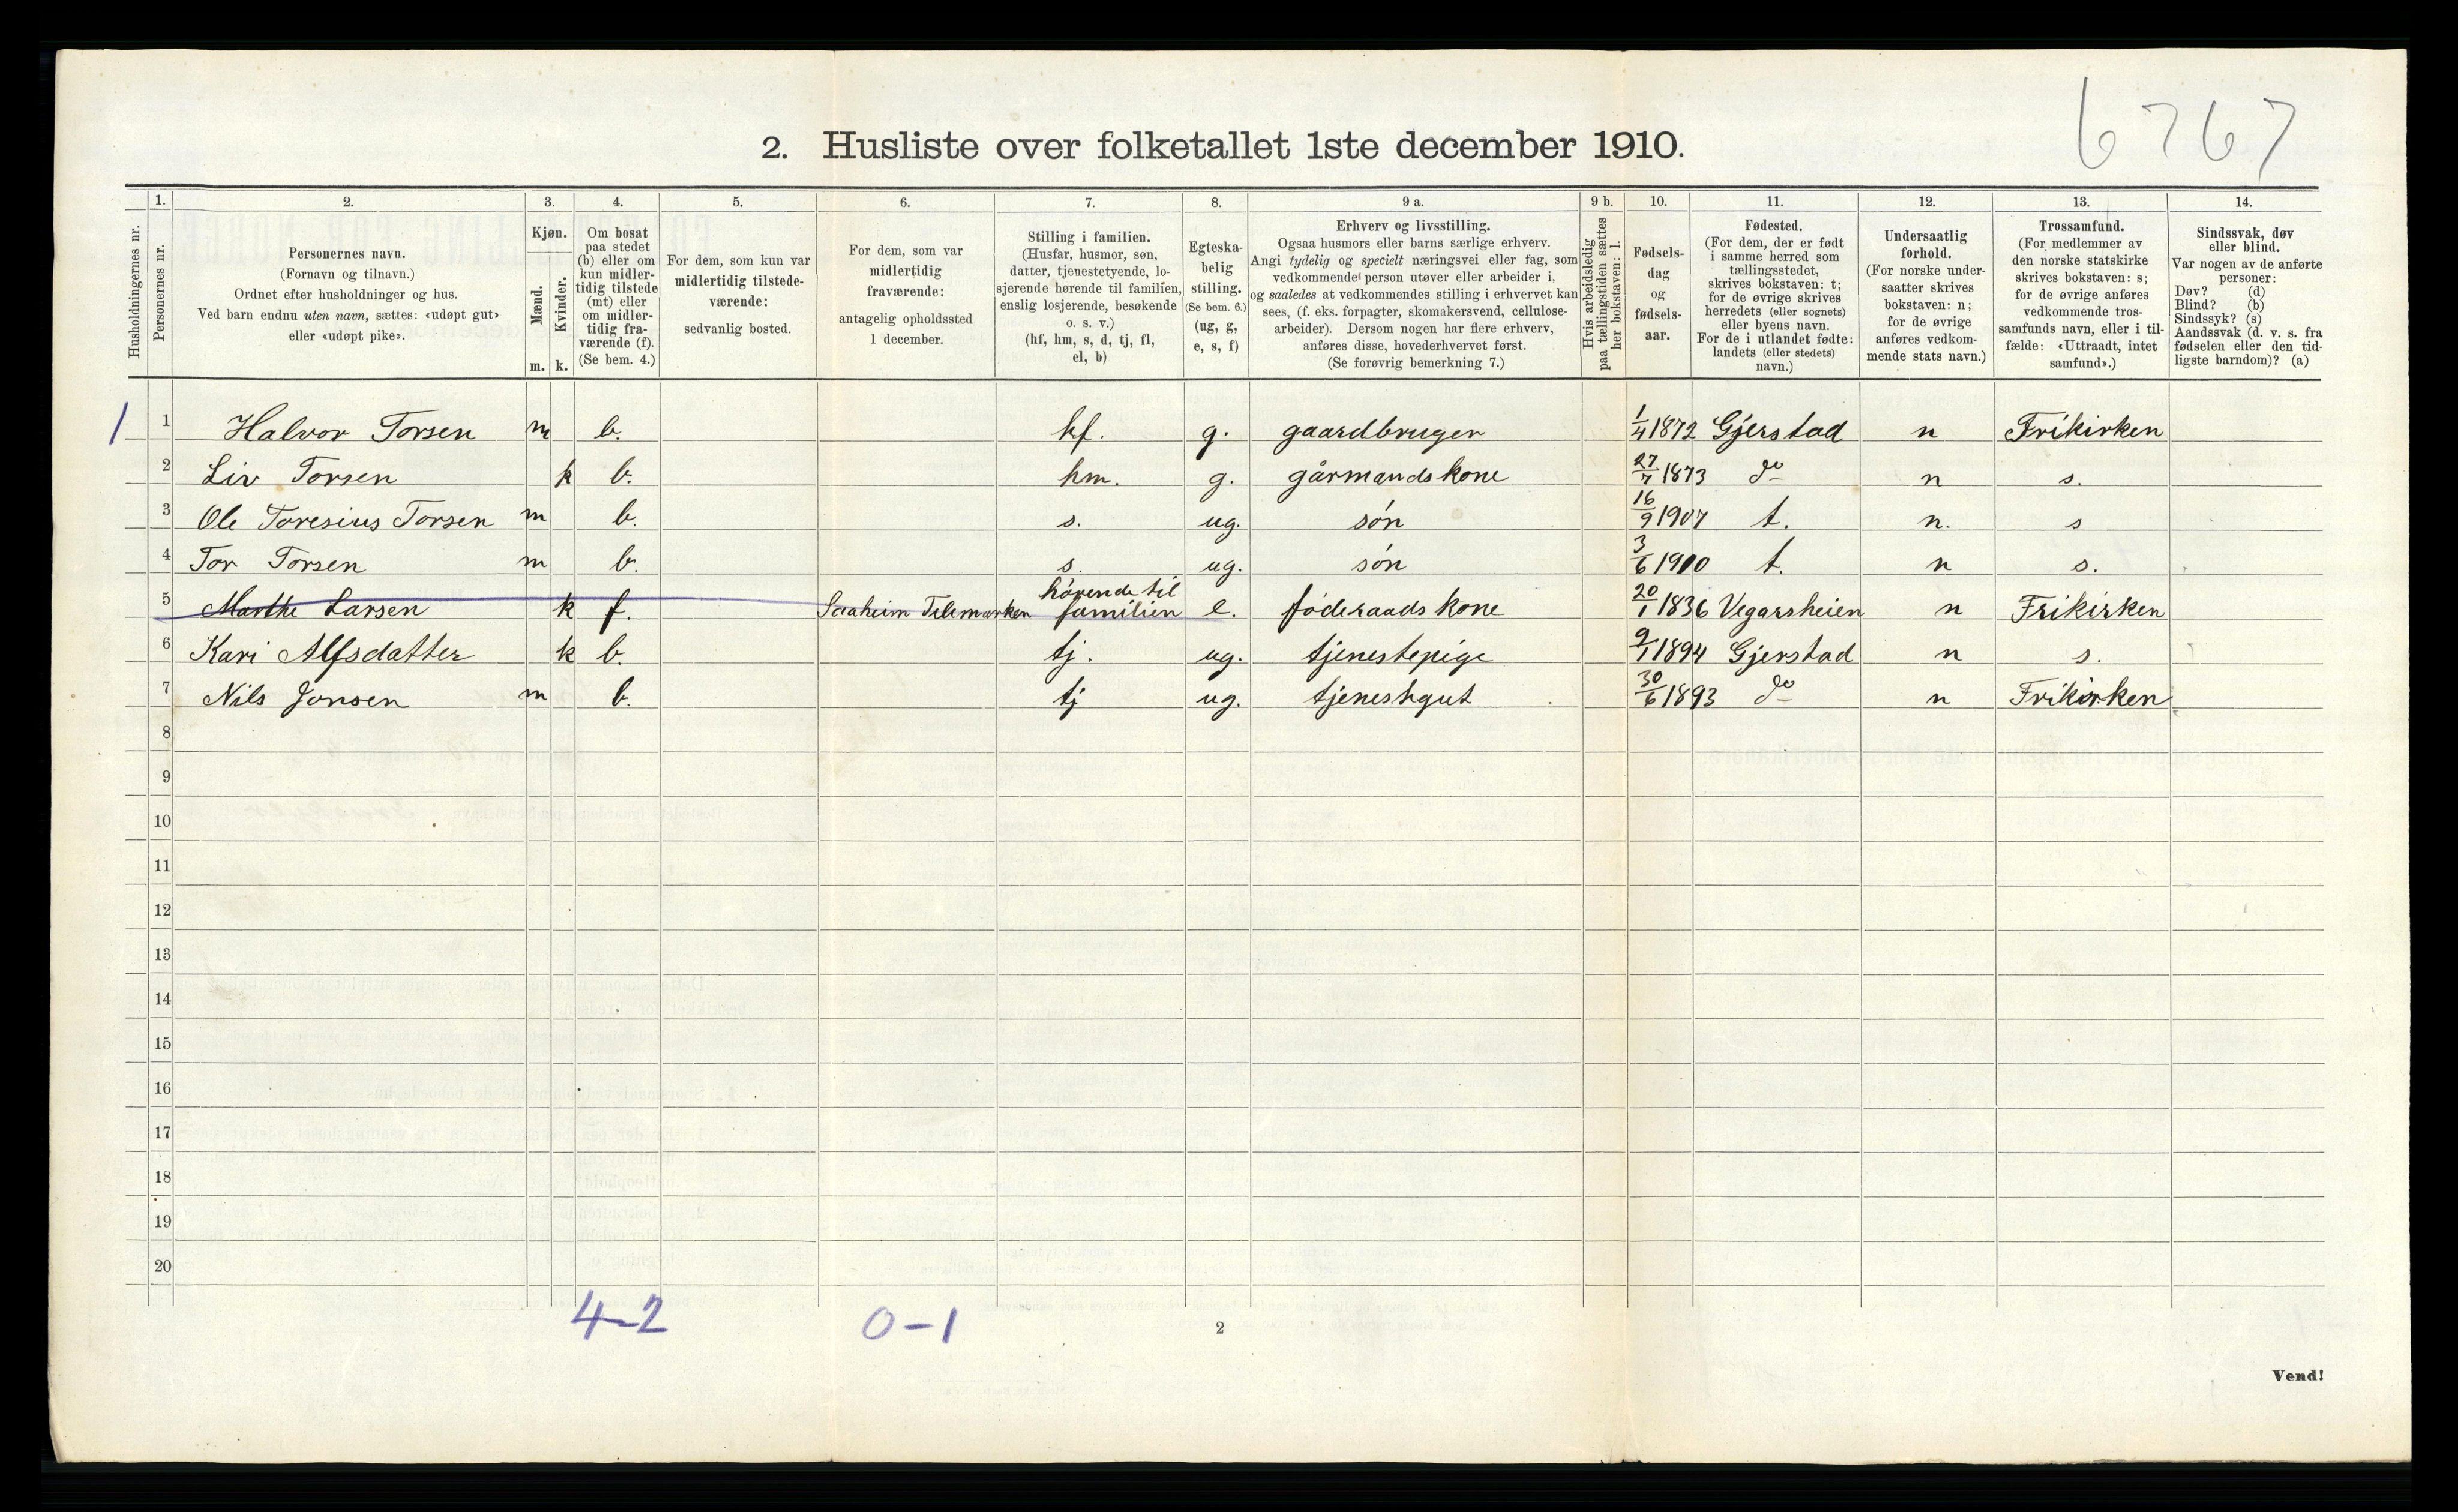 6767
2. Husliste over folketallet 1ste december 1910.
Husholdningernes nr.
1.
Personernes nr.
2.
Personernes navn.
(Fornavn og tilnavn.)
Ordnet efter husholdninger og hus.
Ved barn endnu uten navn, sættes: «udøpt gut»
eller «udøpt pike».
3.
Kjøn.
Mænd.
m.
Kvinder.
k.
4.
Om bosat
paa stedet
(b) eller om
kun midler-
tidig tilstede
(mt) eller
om midler-
tidig fra-
værende (f).
(Se bem. 4.)
5.
For dem, som kun var
midlertidig tilstede-
værende:
sedvanlig bosted.
6.
For dem, som var
midlertidig
fraværende:
antagelig opholdssted
1 december.
7.
Stilling i familien.
(Husfar, husmor, søn,
datter, tjenestetyende, lo-
sjerende hørende til familien,
enslig losjerende, besøkende
o. s. v.)
(hf, hm, s, d, tj, fl,
el, b)
8.
Egteska-
belig
stilling.
(Se bem. 6.)
(ug, g,
e, s, f)
9 a.
Erhverv og livsstilling.
Ogsaa husmors eller barns særlige erhverv.
Angi tydelig og specielt næringsvei eller fag, som
vedkommende person utøver eller arbeider i,
og saaledes at vedkommendes stilling i erhvervet kan
sees, (f. eks. forpagter, skomakersvend, cellulose-
arbeider). Dersom nogen har flere erhverv,
anføres disse, hovederhvervet først.
(Se forøvrig bemerkning 7.)
9 b.
Hvis arbeidsledig
paa tællingstiden sættes
her bokstaven: l.
10.
Fødsels-
dag
og
fødsels-
aar.
11.
Fødested.
(For dem, der er født
i samme herred som
tællingsstedet,
skrives bokstaven: t;
for de øvrige skrives
herredets (eller sognets)
eller byens navn.
For de i utlandet fødte:
landets (eller stedets)
navn.)
12.
Undersaatlig
forhold.
(For norske under-
saatter skrives
bokstaven: n;
for de øvrige
anføres vedkom-
mende stats navn.)
13.
Trossamfund.
(For medlemmer av
den norske statskirke
skrives bokstaven: s;
for de øvrige anføres
vedkommende tros-
samfunds navn, eller i til-
fælde: «Uttraadt, intet
samfund».)
14.
Sindssvak, døv
eller blind.
Var nogen av de anførte
personer:
Døv? (d)
Blind? (b)
Sindssyk? (s)
Aandssvak (d. v. s. fra
fødselen eller den tid-
ligste barndom)? (a)
1 1 Halvor Torsen m b. hf. g. gaardbruger 1/4 1872 Gjerstad n Frikirken
2 Liv Torsen k b. hm. g. gårmandskone 27/7 1873 do n s.
3 Ole Toresius Torsen m b. s. ug. søn 16/9 1907 t. n. s
4 Tor Torsen m b. s. ug. søn 3/6 1910 t. n s.
5 Marthe Larsen k f. Saaheim Telemarken hörende til familien e. föderaadskone 20/1 1836 Vegarsheien n Frikirken
6 Kari Alfsdatter k b. tj. ug. tjenestepige 9/1 1894 Gjerstad n s.
7 Nils Jonsen m b. tj ug. tjenestegut 30/6 1893 do n Frikirken
8
9
10
11
12
13
14
15
16
17
18
19
20
4-2 0-1
2
Vend!